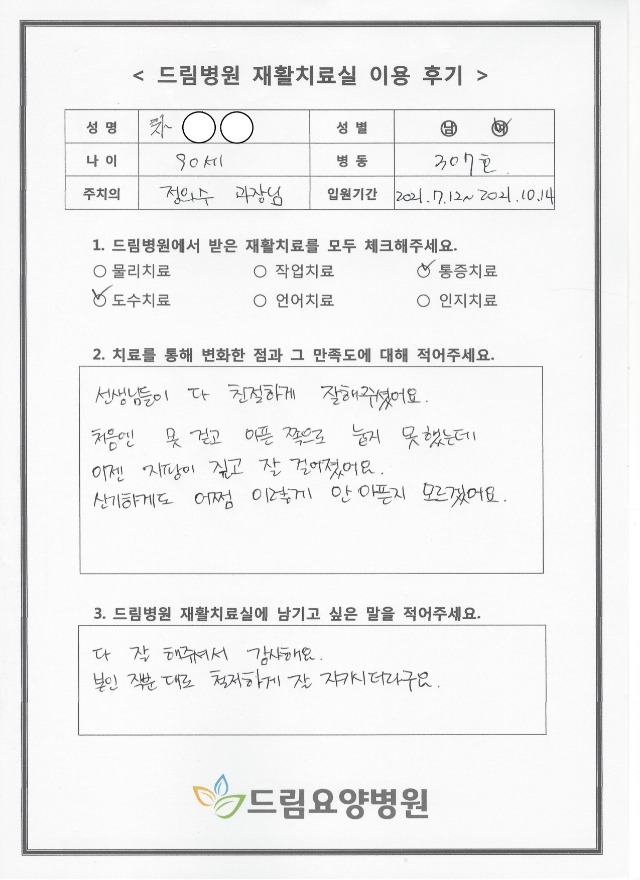 < 드림병원 재활치료실 이용 후기 >
성 명 성 별 남 여
나 이 90세 병 동 307호
주치의 정의수 과장님 입원기간 2021.7.12~2021.10.14
1. 드림병원에서 받은 재활치료를 모두 체크해주세요.
물리치료 작업치료 통증치료
도수치료 언어치료 인지치료
2. 치료를 통해 변화한 점과 그 만족도에 대해 적어주세요.
선생님들이 다 친절하게 잘해주셨어요.
처음엔 못 걷고 아픈 쪽으로 눕지 못했는데
이젠 지팡이 짚고 잘 걸어졌어요.
신기하게도 어쩜 이렇게 안 아픈지 모르겠어요.
3. 드림병원 재활치료실에 남기고 싶은 말을 적어주세요.
다 잘 해주셔서 감사해요.
본인 직분 대로 철저하게 잘 지키시더라구요.
드림요양병원